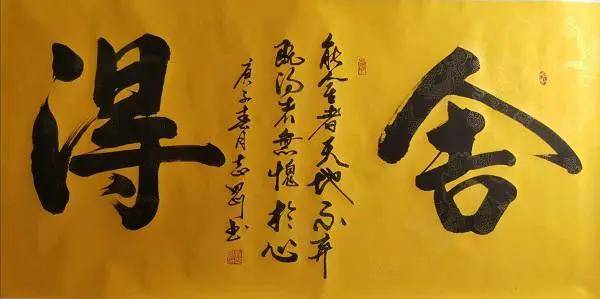 舍
能舍者天地不弃
既得者無愧於心
庚子春月志书
得